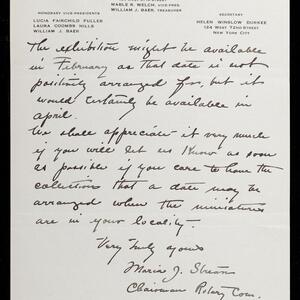 MABLE R. WELCH, VICE-PRES.
WILLIAM J. BAER, TREASURER
HONORARY VICE-PRESIDENTS
LUCIA FAIRCHILD FULLER
LAURA COOMBS HILLS
WILLIAM J. BAER
SECRETARY
HELEN WINSLOW DURKEE
124 WEST 72ND STREET
NEW YORK CITY
The exhibition might be available
in February as that date is not
positively arranged for, but it
would certainly be available in
april.
We shall appreciate it very much
if you will let us know as soon
as possible if you care to have the
collections that a date may be
arranged when the miniatures
are in your locality.
Very truly yours
Marie J. Strean
Chairman Rotary Com.